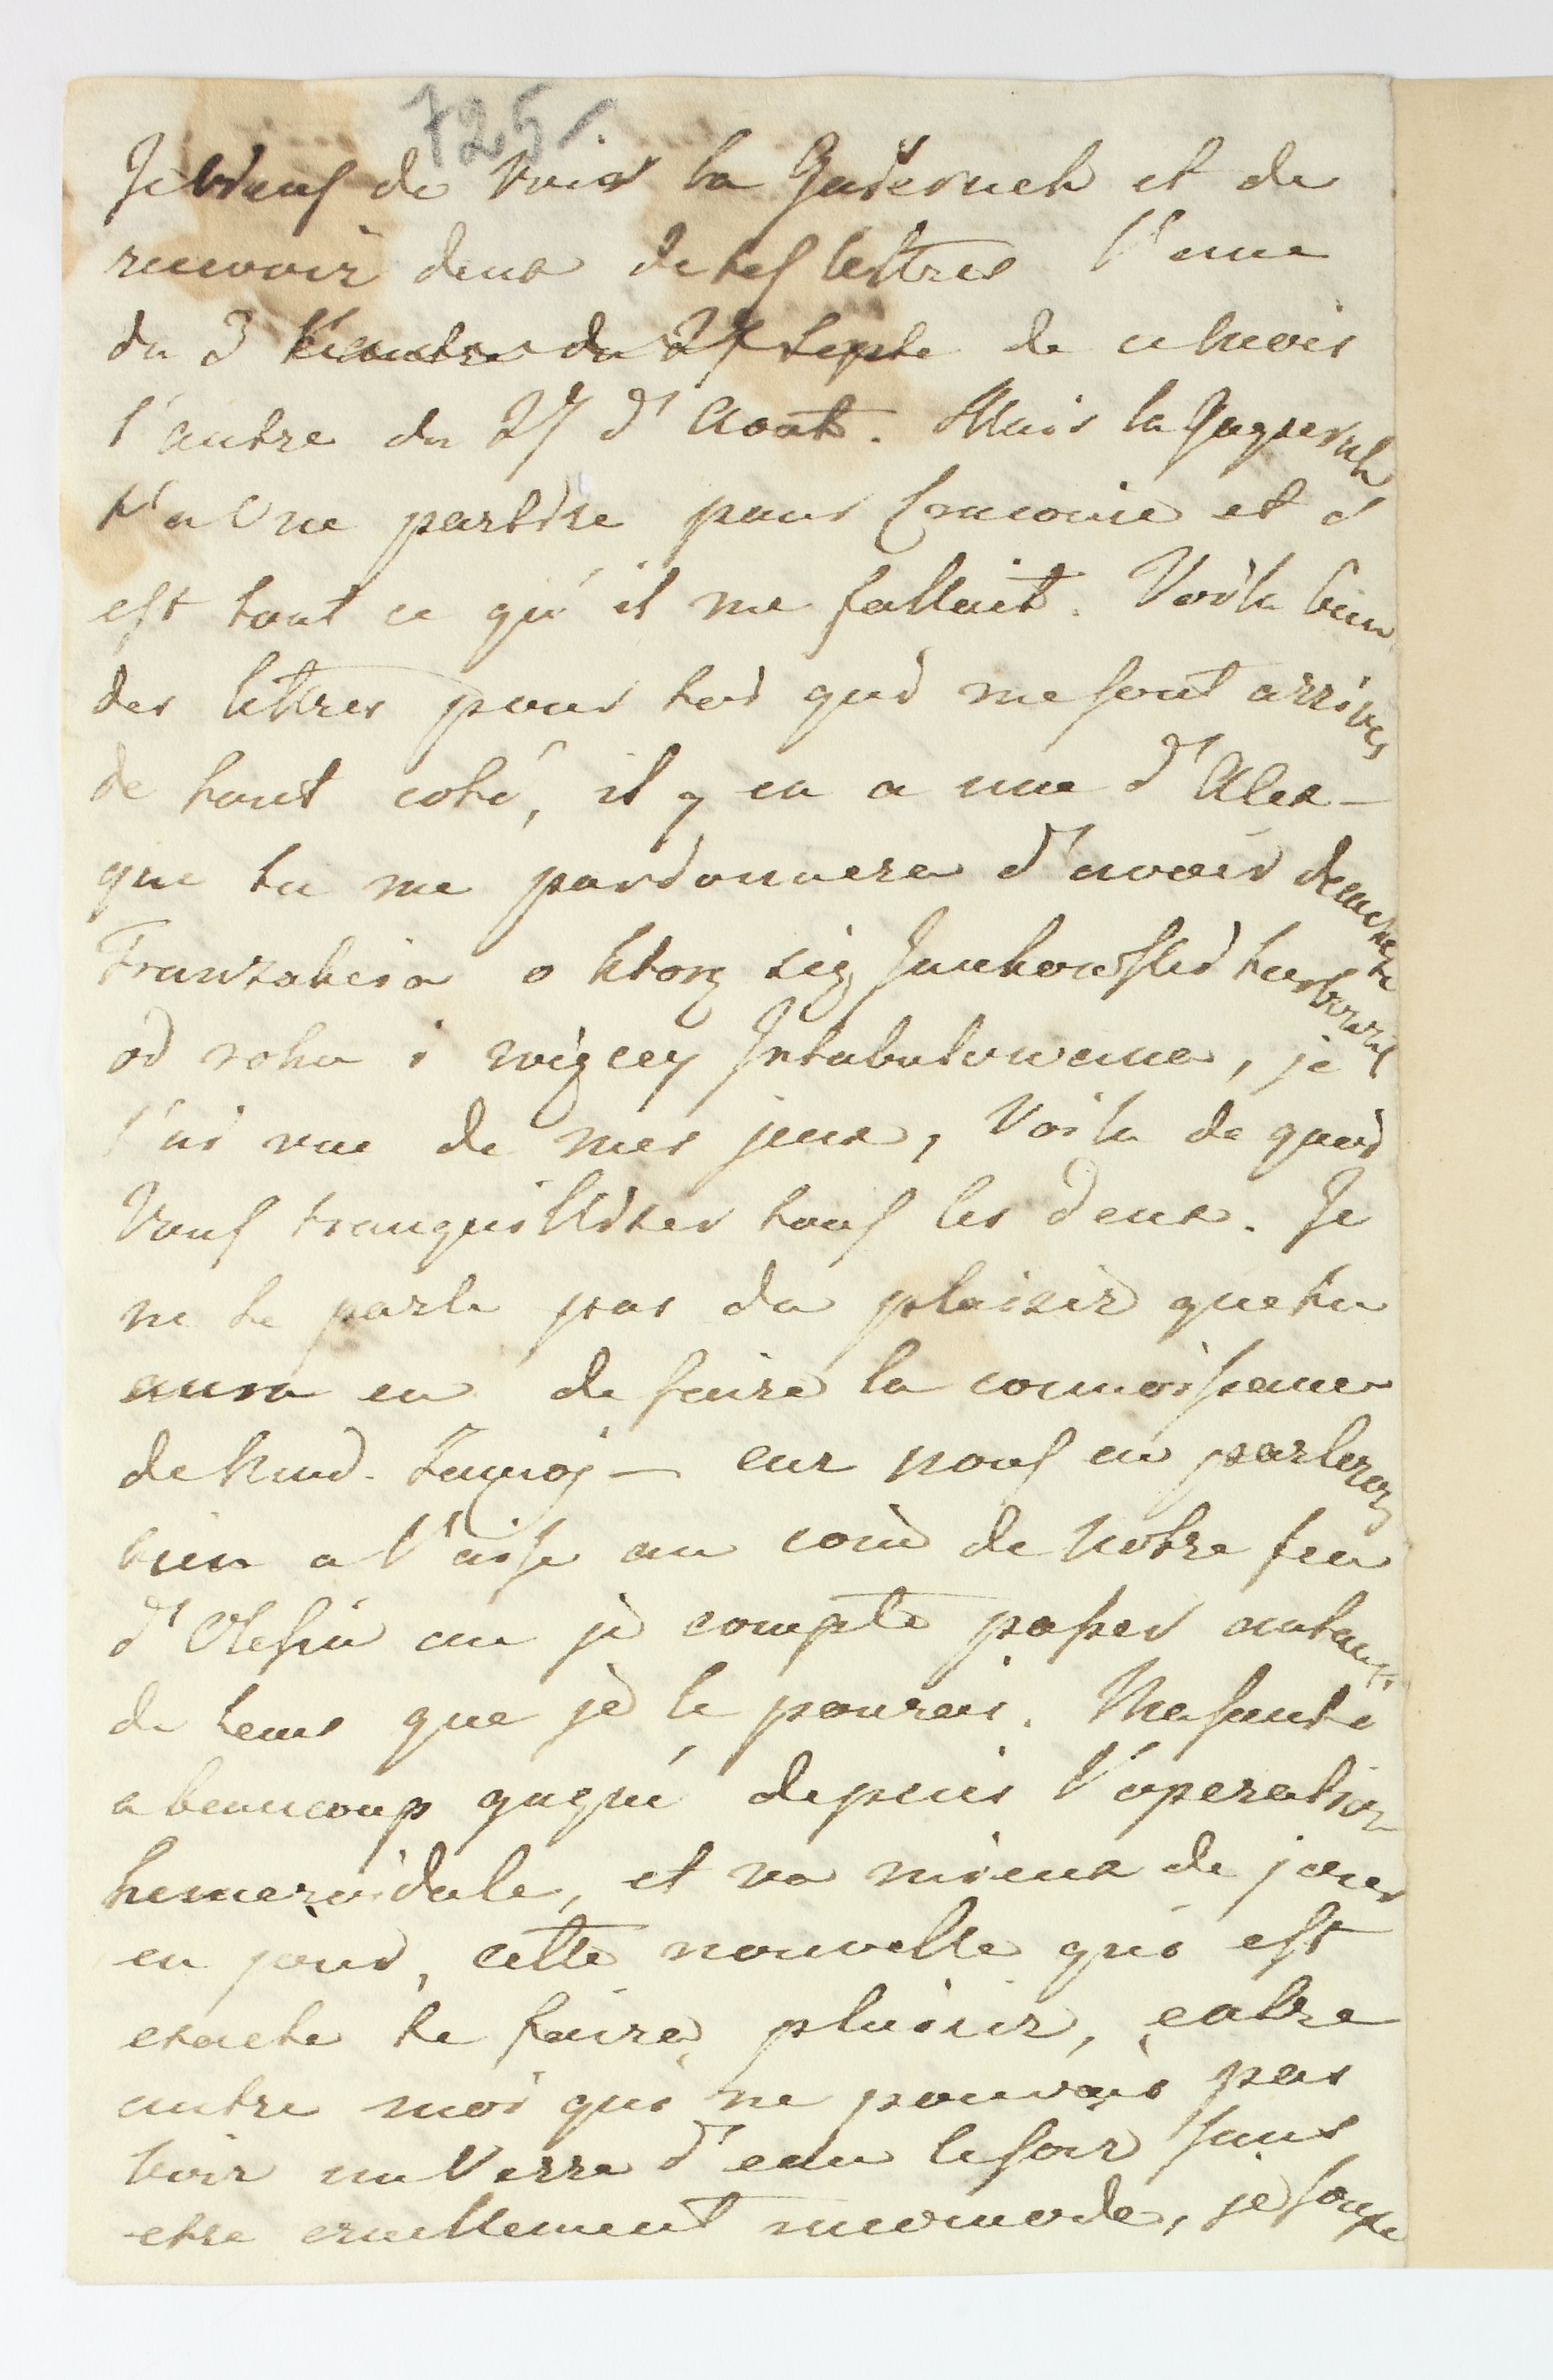 725
Je vieus de voir la et de
recevoir deux de tes lettres l'une
du 3 de ce mois
l'autre du 27 d'Août. Mais la
t'a vue partire pour Cracovie et c'
est tout ce qu'il me fallait. Voila bien
des lettres pour toi qui me sont arrives
de tout coté, il y en a une d'Alex-
que tu me pardonnera d'avoir
o ktorą się Jankowski
od roku i więcey Intabulowana, je
l'ai vue de mes jeux, Voila de quoi
Vous tranquilliser tous les deux. Je
ne te parle pas du plaisir que tu
aura eu de faire la connoissance
de Mad. Zamoj— car nous en parlerons
bien a l'aise au coin de notre feu
d'Olesin ou je compte passer autant
de tems que je le pourai. Ma santé
a beaucoup gagné depuis l'operation
hemeroidale, et va mieux de jour
en jour, cette nouvelle qui est
exacte te faira plaisir, entre
autre moi qui ne pouvais pas
boir un Verre d'eau le soir sans
etre cruellement incomode, je soupe